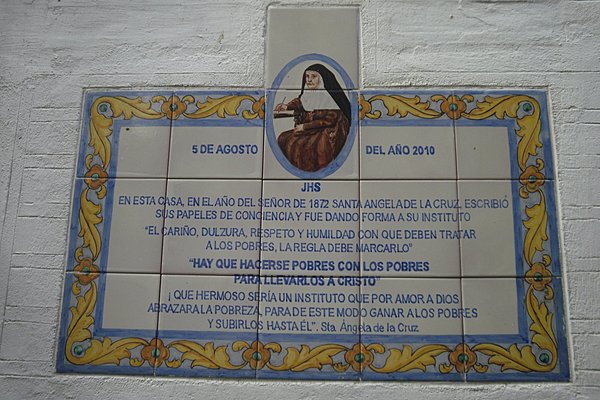 5 DE AGOSTO DEL AÑO 2010
JHS
EN ESTA CASA, EN EL AÑO DEL SEÑOR DE 1872 SANTA ANGELA DE LA CRUZ, ESCRIBIÓ
SUS PAPELES DE CONCIENCIA Y FUE DANDO FORMA A SU INSTITUTO
"EL CARIÑO, DULZURA, RESPETO Y HUMILDAD CON QUE DEBEN TRATAR
A LOS POBRES, LA REGLA DEBE MARCARLO"
"HAY QUE HACERSE POBRES CON LOS POBRES
PARA LLEVARLOS A CRISTO"
¡ QUE HERMOSO SERÍA UN INSTITUTO QUE POR AMOR A DIOS
ABRAZARA LA POBREZA, PARA DE ESTE MODO GANAR A LOS POBRES
Y SUBIRLOS HASTA ÉL". Sta. Ángela de la Cruz